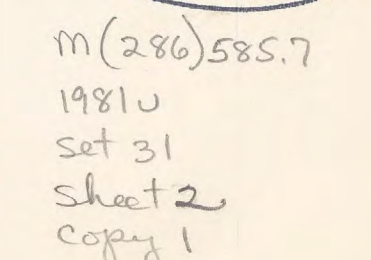 m(286)585.7
1981u
set 31
sheet 2
copy 1